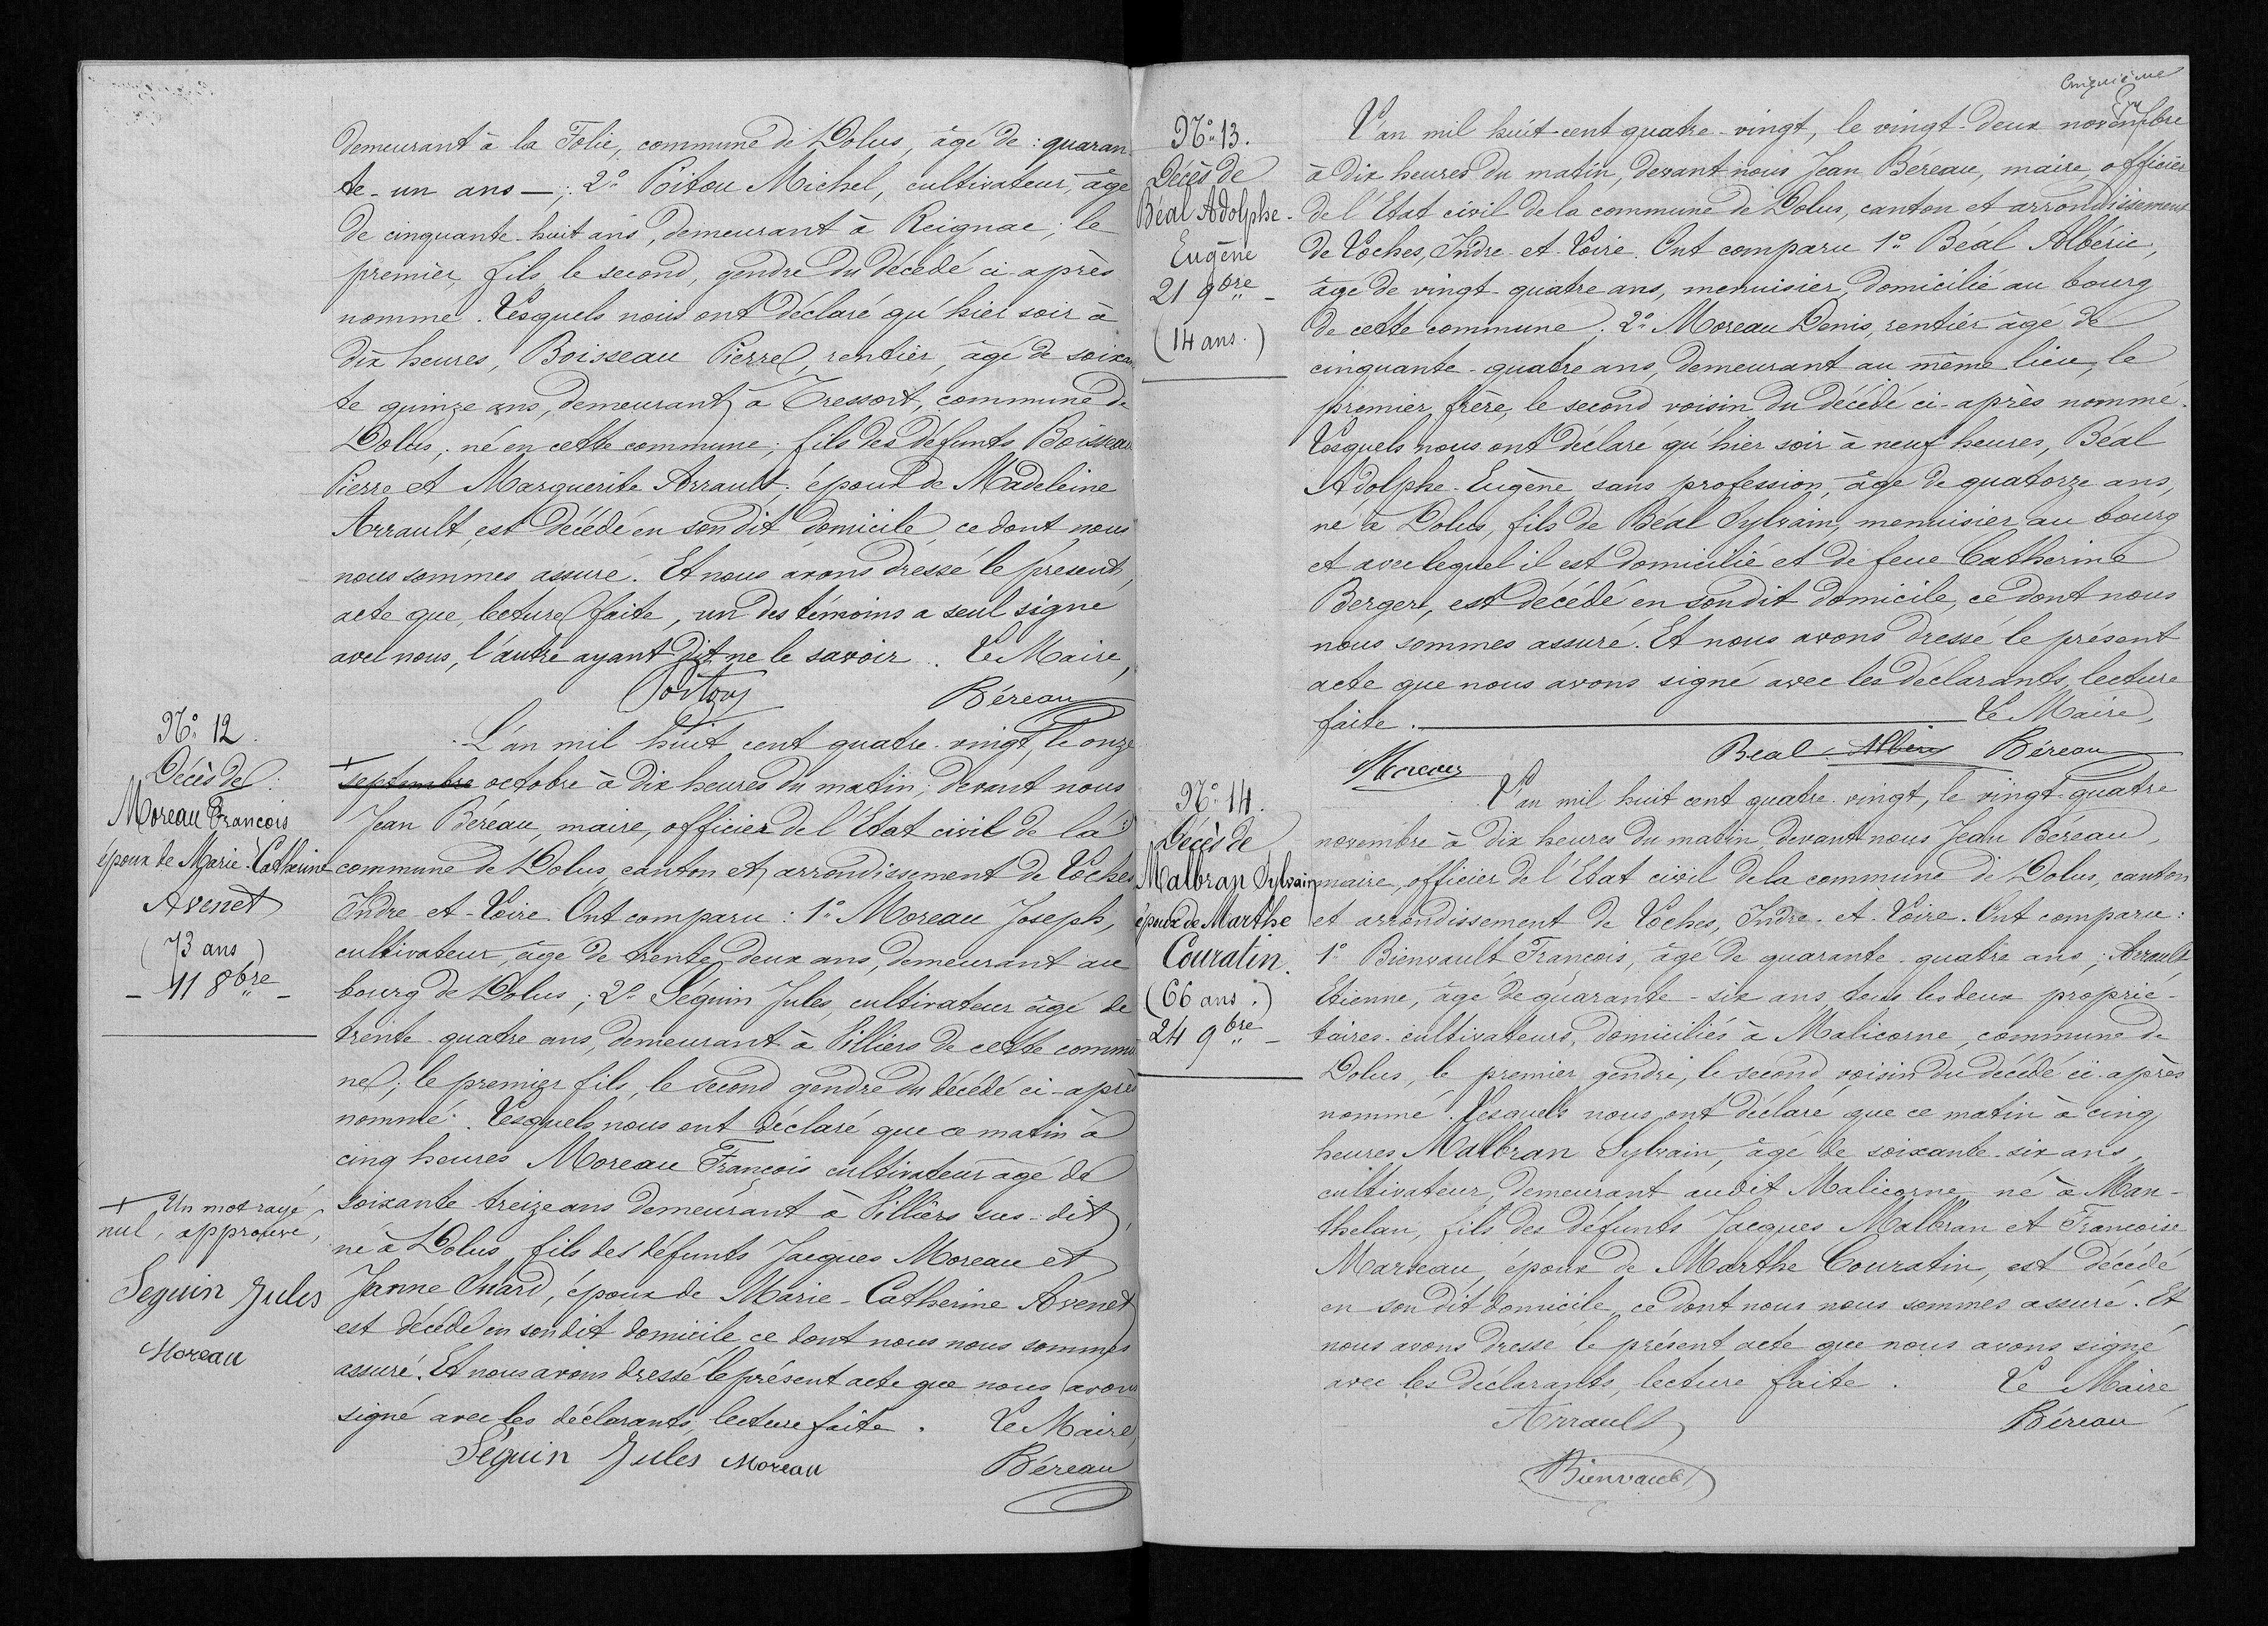 demeurant à la Folie, commune de Dolus, âgé de : quaran
te-un ans —; 2° Poitou Michel, cultivateur, âgé
de cinquante-huit ans, demeurant à Reignac; le
premier, fils, le second, gendre du décédé ci-après
nommé. Lesquels nous ont déclaré qu'hier soir à
dix heures, Boisseau Pierre, rentier, âgé de soixan
te quinze ans, demeurant à Tressort, commune de
Dolus, né en cette commune; fils des défunts Boisseau
Pierre et Marguerite Arrault; époux de Madeleine
Arrault, est décédé en son dit domicile, ce dont nous
nous sommes assuré. Et nous avons dressé le présent
acte que, lecture faite, un des témoins a seul signé
avec nous, l'autre ayant dit ne le savoir. Le Maire,
Poitou Béreau
N° 12.
Décès de :
Moreau François
époux de Marie-Catherine
Avenet
(73 ans)
- 11 8bre -
+ Un mot rayé
nul, approuvé,
Seguin Jules
Moreau
L'an mil huit cent quatre-vingt, le onze
+ septembre octobre à dix heures du matin, devant nous
Jean Béreau, maire, officier de l'Etat civil de la
commune de Dolus, canton et arrondissement de Loches
Indre-et-Loire. Ont comparu : 1° Moreau Joseph,
cultivateur, âgé de trente deux ans, demeurant au
bourg de Dolus; 2° Séguin Jules, cultivateur âgé de
trente-quatre ans, demeurant à Villiers de cette commu
ne; le premier fils, le second gendre du décédé ci-après
nommé. Lesquels nous ont déclaré que ce matin à
cinq heures Moreau François cultivateur âgé de
soixante treize ans demeurant à Villiers sus-dit,
né à Dolus, fils des défunts Jacques Moreau et
Janne Suard, époux de Marie-Catherine Avenet
est décédé en son dit domicile ce dont nous nous sommes
assuré. Et nous avons dressé le présent acte que nous avons
signé avec les déclarants, lecture faite. Le Maire,
Séguin Jules Moreau Béreau
Cinquième
N° 13.
Décès de
Béal Adolphe-
Eugène
21 9bre -
(14 ans.)
L'an mil huit-cent quatre-vingt, le vingt-deux novembre
à dix heures du matin, devant nous Jean Béreau, maire, officier
de l'Etat civil de la commune de Dolus, canton et arrondissement
de Loches, Indre-et-Loire. Ont comparu 1° Béal Albéric,
âgé de vingt-quatre ans, menuisier, domicilié au bourg
de cette commune; 2° Moreau Denis, rentier âgé de
cinquante-quatre ans, demeurant au même lieu, le
premier, frère, le second voisin du décédé ci-après nommé.
Lesquels nous ont déclaré qu'hier soir à neuf heures, Béal
Adolphe-Eugène, sans profession, âgé de quatorze ans,
né à Dolus, fils de Béal Sylvain, menuisier au bourg
et avec lequel il est domicilié et de feue Catherine
Berger, est décédé en son dit domicile, ce dont nous
nous sommes assuré. Et nous avons dressé le présent
acte que nous avons signé avec les déclarants, lecture
faite. Le Maire,
Moreau Beal Albéric Béreau
N° 14.
Décès de
Malbran Sylvain
époux de Marthe
Couratin.
(66 ans.)
24 9bre -
L'an mil huit cent quatre-vingt, le vingt-quatre
novembre à dix heures du matin, devant nous Jean Béreau,
maire, officier de l'Etat civil de la commune de Dolus, canton
et arrondissement de Loches, Indre-et-Loire. Ont comparu :
1° Bienvault François, âgé de quarante-quatre ans; Arrault
Etienne, âgé de quarante-six ans, tous les deux proprié-
taires-cultivateurs, domiciliés à Malicorne, commune de
Dolus, le premier gendre, le second voisin du décédé ci-après
nommé. Lesquels nous ont déclaré que ce matin à cinq
heures Malbran Sylvain, âgé de soixante-six ans,
cultivateur, demeurant audit Malicorne né à Man-
thelan, fils des défunts Jacques Malbran et Françoise
Marteau, époux de Marthe Couratin, est décédé
en son dit domicile, ce dont nous nous sommes assuré. Et
nous avons dressé le présent acte que nous avons signé
avec les déclarants, lecture faite. Le Maire
Arrault Béreau
Bienvault